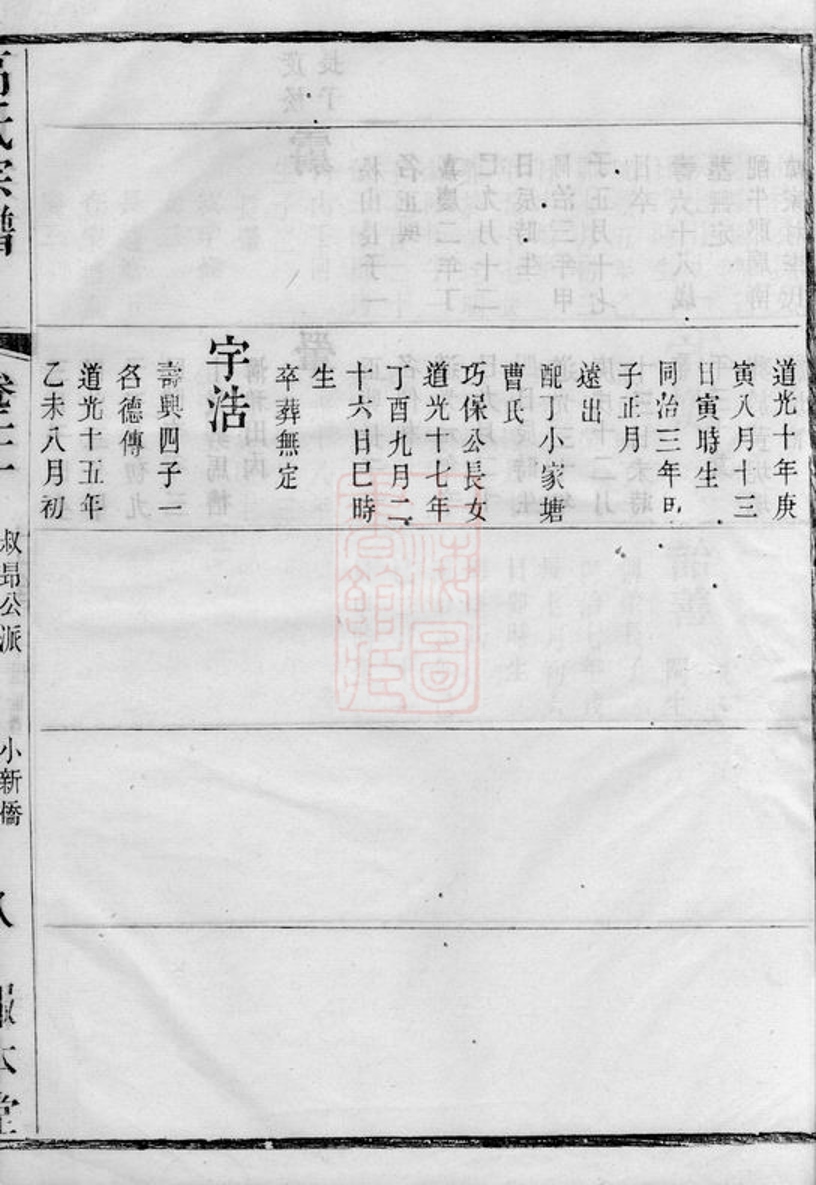 道光十年庚
寅八月十三
日寅時生
同治三年甲
子正月
遠出
配丁小家塘
曹氏
巧保公長女
道光十七年
丁酉九月二
十六日巳時
生
卒葬無定
字浩
壽興四子一
名德傳
道光十五年
乙未八月初
氏宗譜
叔昂公派
小新僑